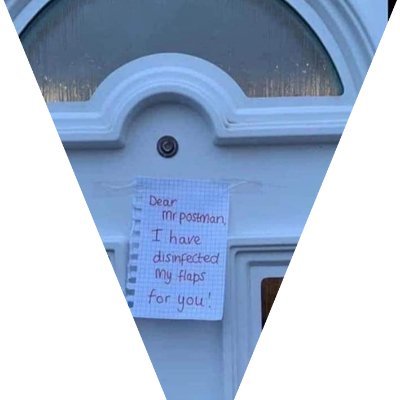 Dear
Mr postman,
I have
disinfected
My flaps
for you!